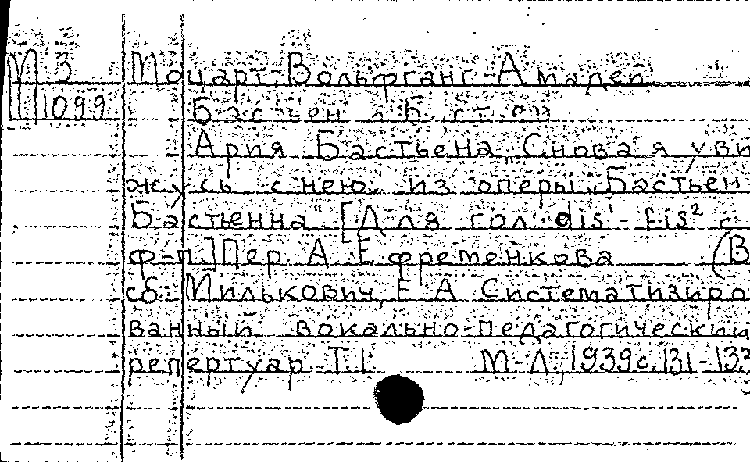 М 3 Моцарт Вольфганг-Амадей
1099 Бастьен и Бастьен
Ария Бастьена „Снова я уви
жусь с нею" из оперы Бастьен
Бастьенна [Для гол. dis¹-fis² с
ф-п.] Пер. А. Ефременкова (В
сб: Милькович, Е. А. Систематизиро
ванный вокально-педагогический
репертуар Т. I. М-Л., 1939 с. 131-133